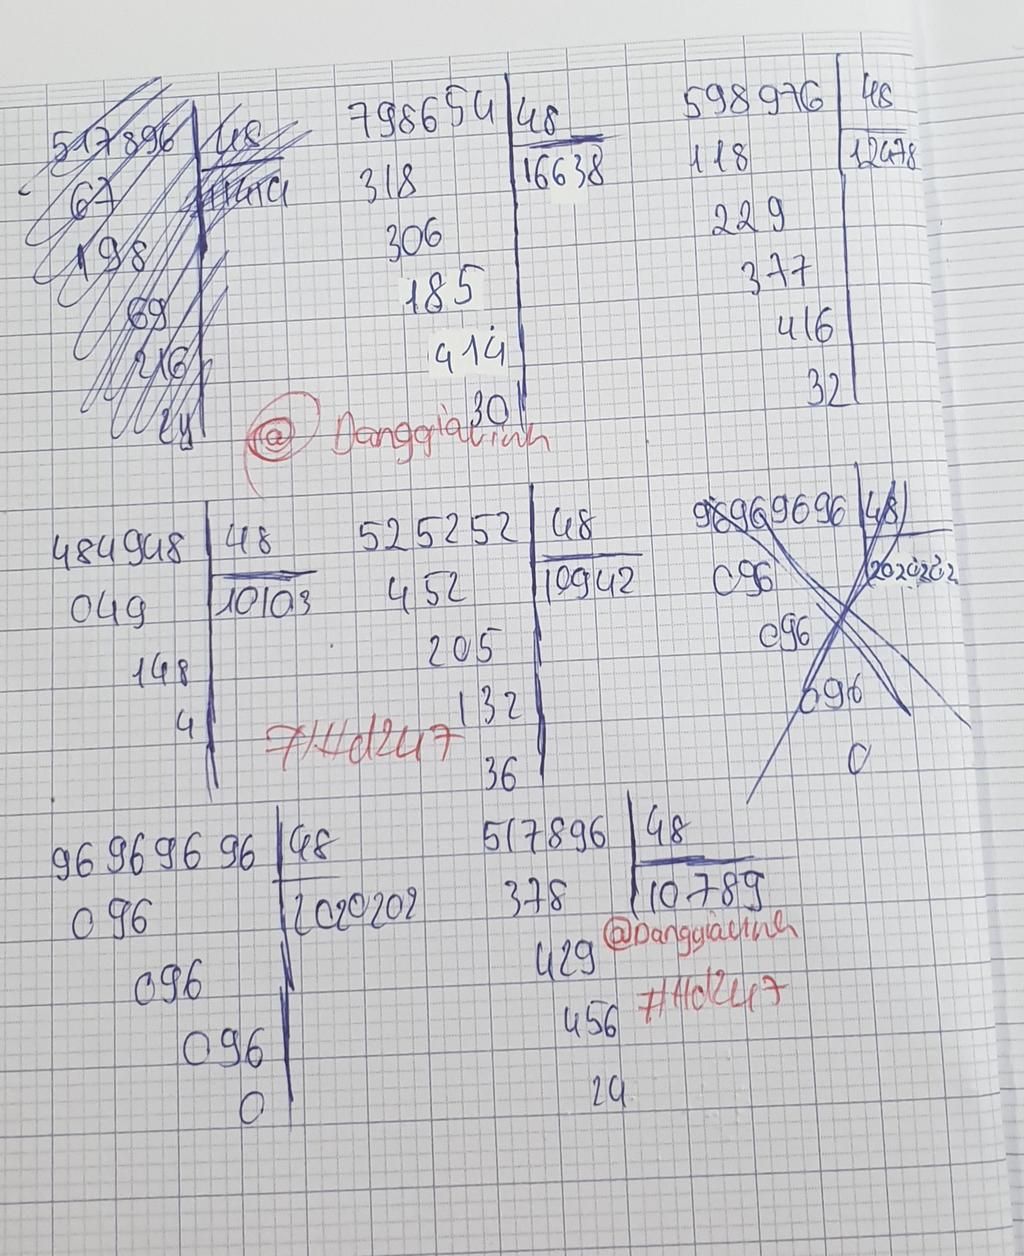 517896 48
67
198
69
216
24
798654 48
318 16638
306
185
414
30
598976 48
118 12478
229
377
416
32
@ Danggiàlinh
484948 48
049 10103
148
4
525252 48
452 10942
205
132
36
96969696 48
096 2020202
096
096
0
#Hd247
96969696 48
096 2020202
096
096
0
517896 48
378 10789
429
456
24
@Danggiàlinh
#Hd247